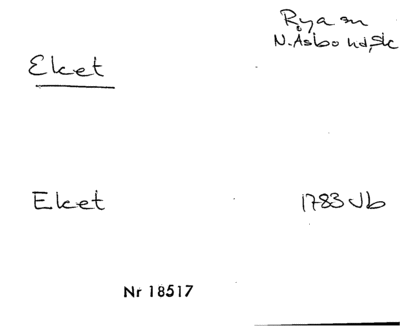 Röya sn
N. Åsbo hd, Sk
Eket
Eket 1783 Jb
Nr 18517